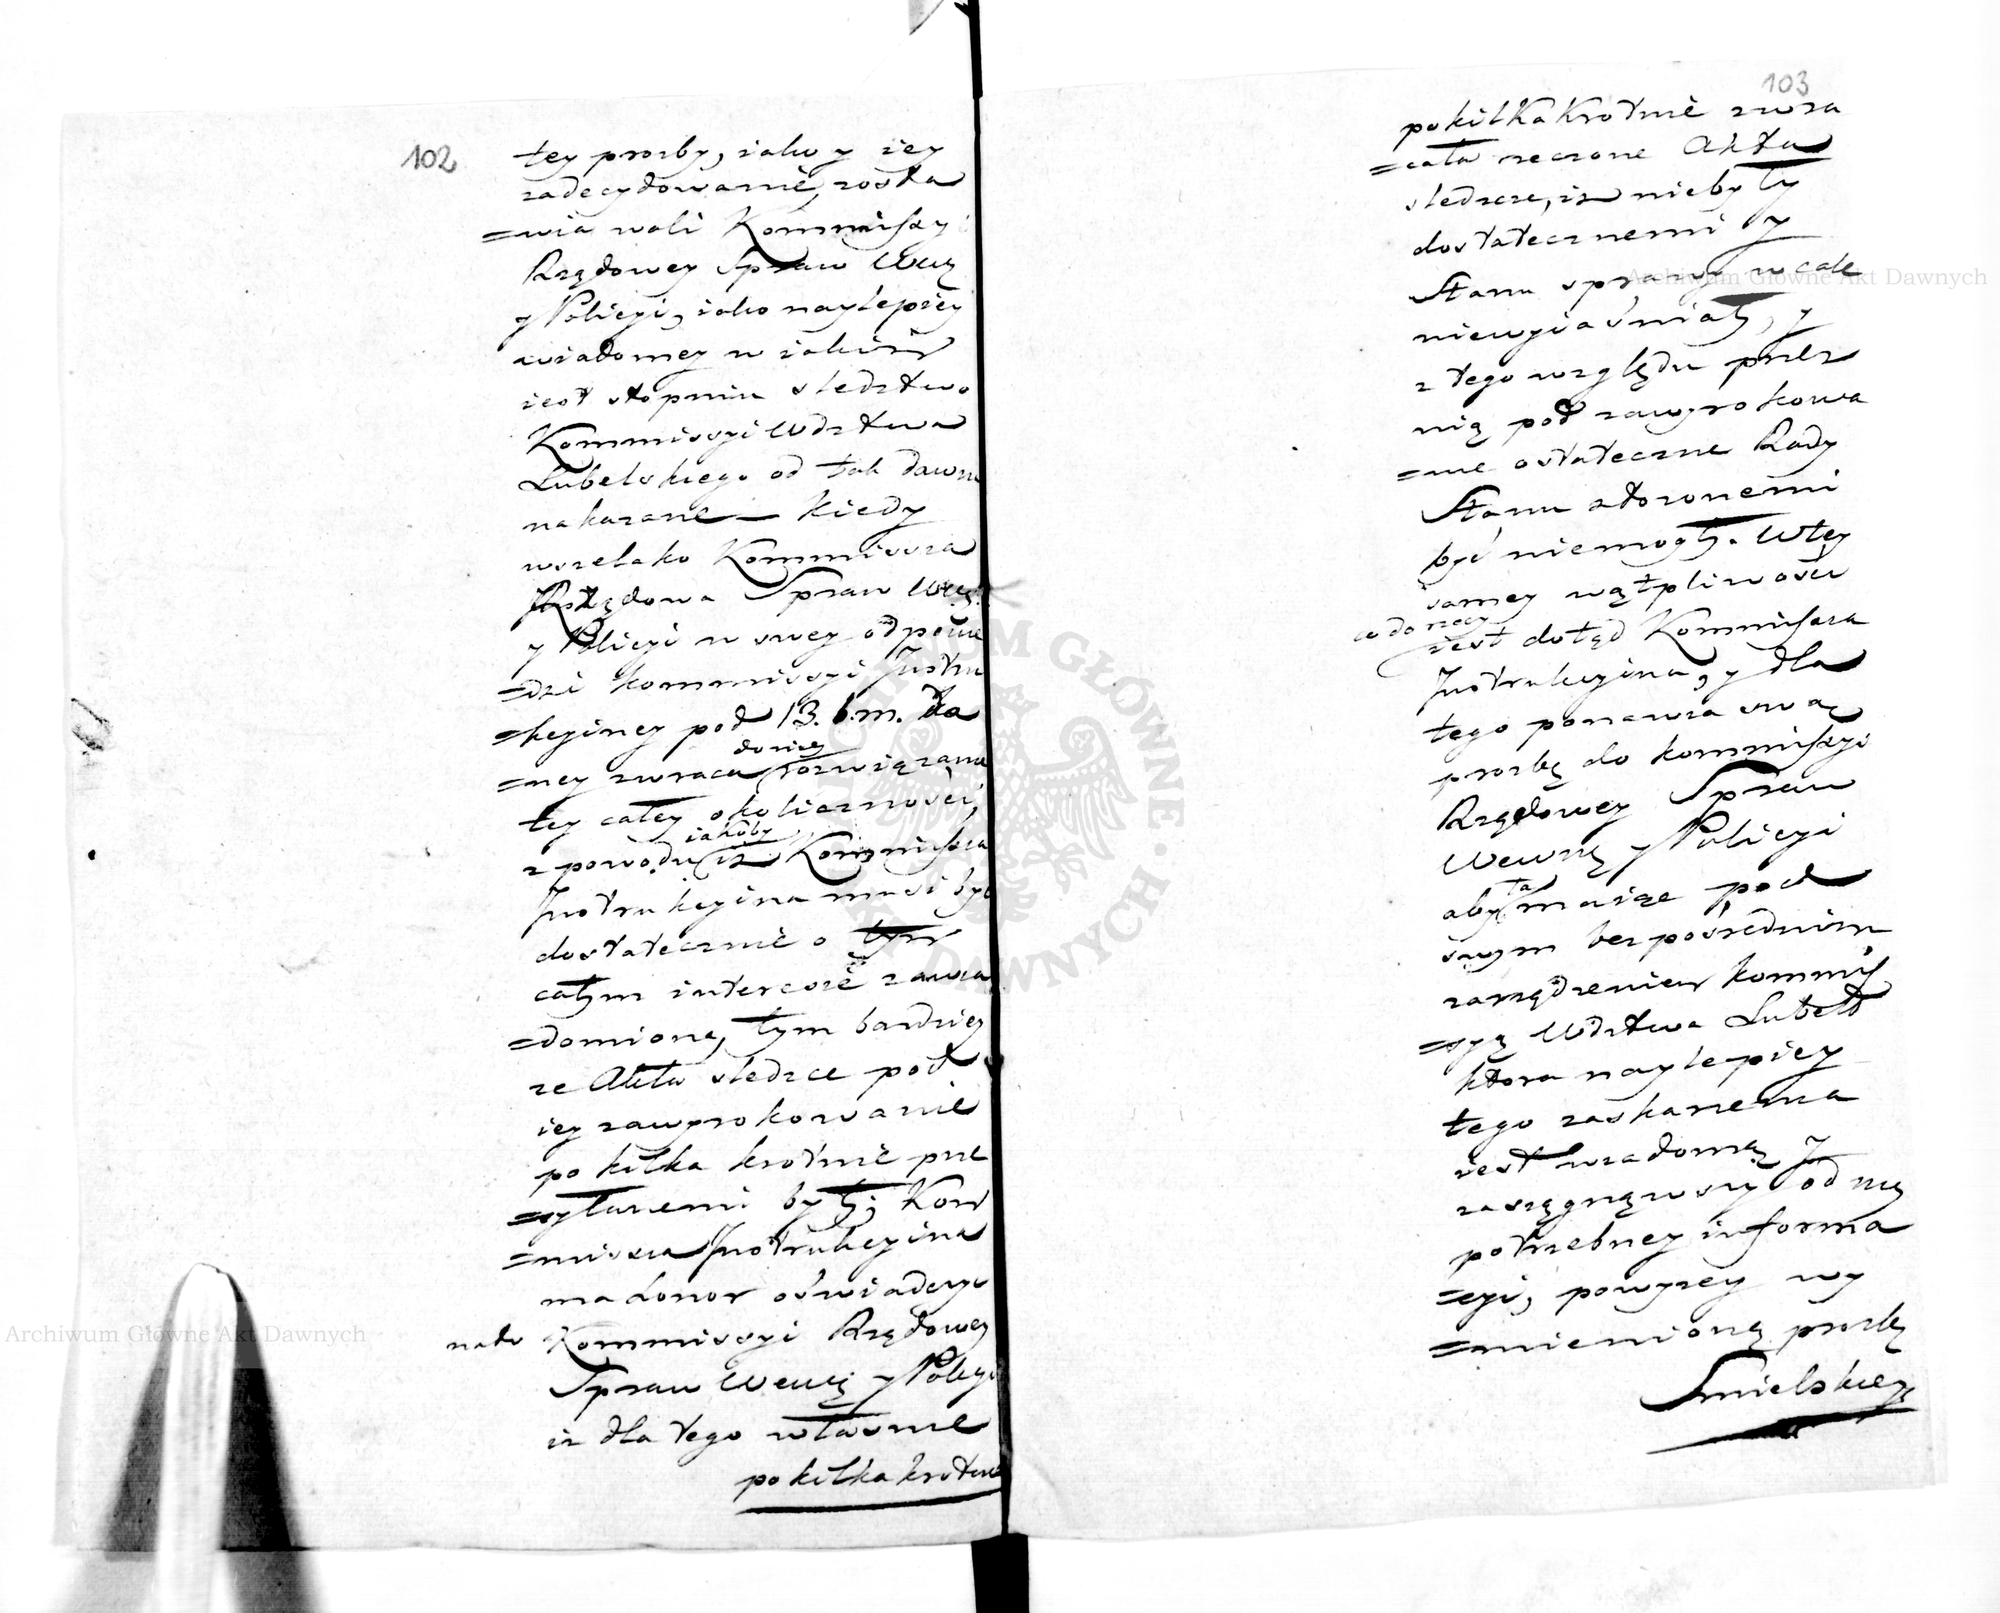 102
tey prośby, iako y iey
zadecydowanie, zosta
=wia woli Kommissyi
Rządowey Spraw Wew:
y Policyi, iako naylepiey
wiadomey w iakim
iest stopniu sledztwo
Kommissyi Wdztwa
Lubelskiego od tak dawna
nakazane — kiedy
wszelako Kommissya
Rządowa Spraw Wew:
y Policyi w swey odpowie
=dzi Kommissyi Instru
=kcyiney pod 13. b.m. da
=ney zwraca do niey rozwiązanie
tey całey okoliczności,
z powodu iakoby iz Kommissya
Instrukcyina musi być
dostatecznie o tym
całym interesie zawia
=domioną, tym bardziey
ze Akta sledcze pod
iey zawyrokowanie
po kilka krotnie prze
=syłanemi były; Kom
=missya Instrukcyina
ma honor oświadczyć
na to Kommissyi Rządowey
Spraw Wew: y Policyi
iz dla tego właśnie
po kilkakrotnie
103
pokilkakrotnie zwra
=cała rzeczone Akta
sledcze, iz nie były
dostatecznemi y
Stanu sprawy wcale
niewyiaśniały, y
z tego względu przez
nią pod zawyrokowa
=nie ostateczne Rady
Stanu złożonemi
być niemogły. W tey
samey wątpliwości
co do rzeczy iest dotąd Kommissya
Instrukcyina, y dla
tego ponawia swą
prośbę do Kommissyi
Rządowey Spraw
Wewnę y Policyi
aby ta maiąc pod
swym bezpośrednim
zarządzeniem Kommis
=syą Wdztwa Lubels
ktora naylepiey
tego zaskarzenia
iest wiadomą,
zasięgnąwszy od niey
potrzebney informa
=cyi, powyzey wy
=mienioną prośbę
Smielskiey
Archiwum Główne Akt Dawnych
Archiwum Główne Akt Dawnych
ARCHIWUM GŁÓWNE AKT DAWNYCH